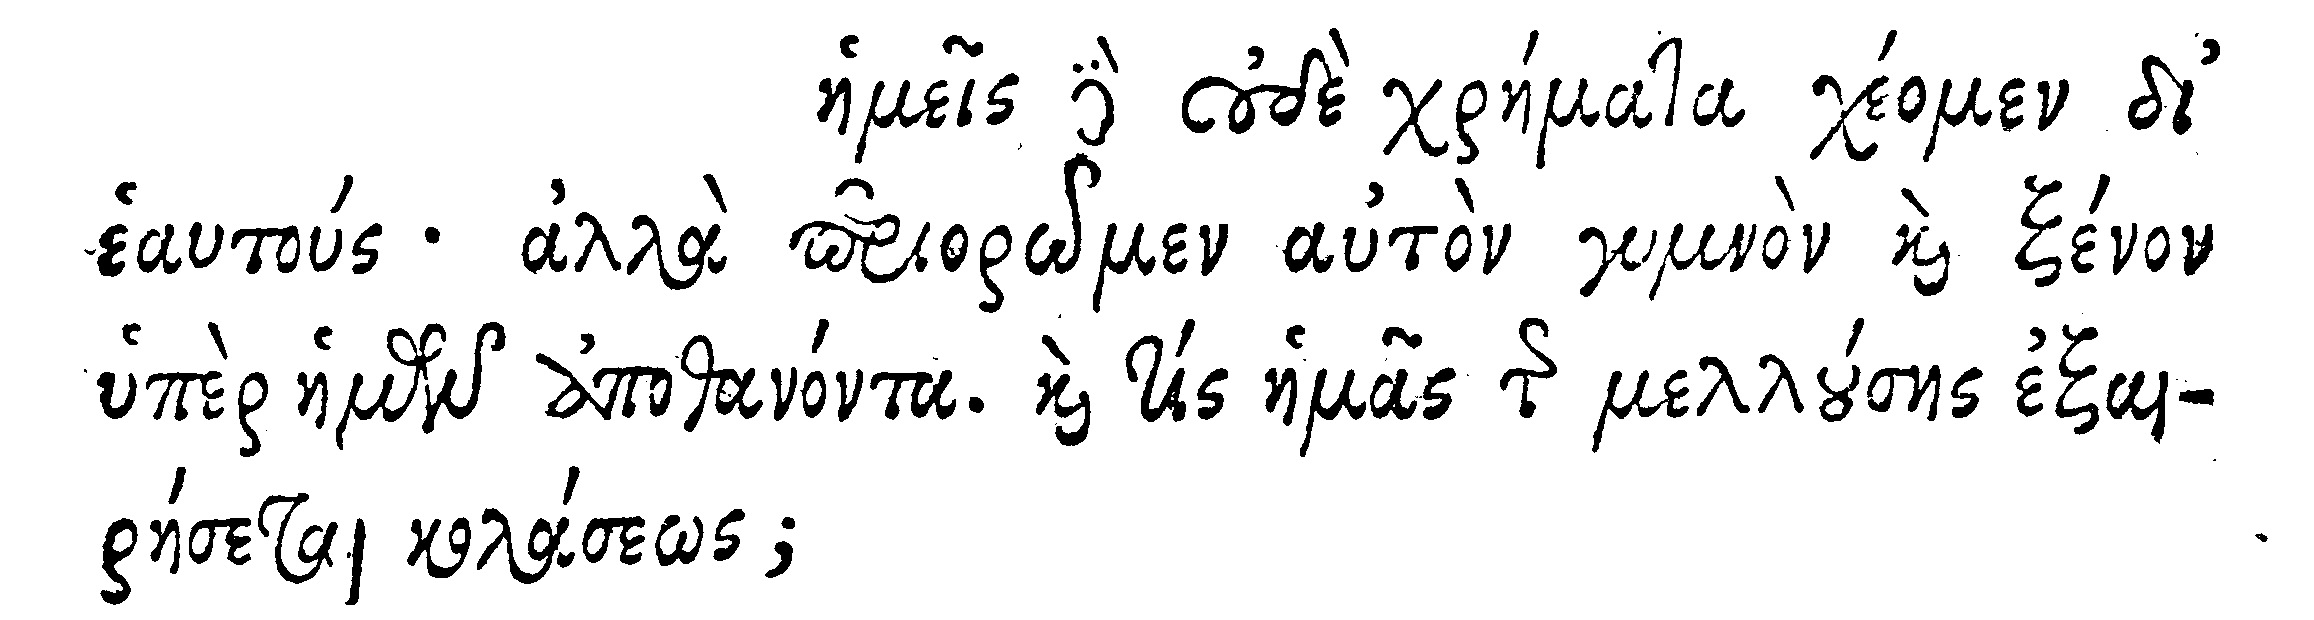 ἡμεῖς δὲ οὐδὲ χρήματα χέομεν δι’
ἑαυτούς· ἀλλὰ περιορῶμεν αὐτὸν γυμνὸν καὶ ξένον
ὑπὲρ ἡμῶν ἀποθανόντα. καὶ τίς ἡμᾶς τῆς μελλούσης ἐξαι-
ρήσεται κολάσεως;